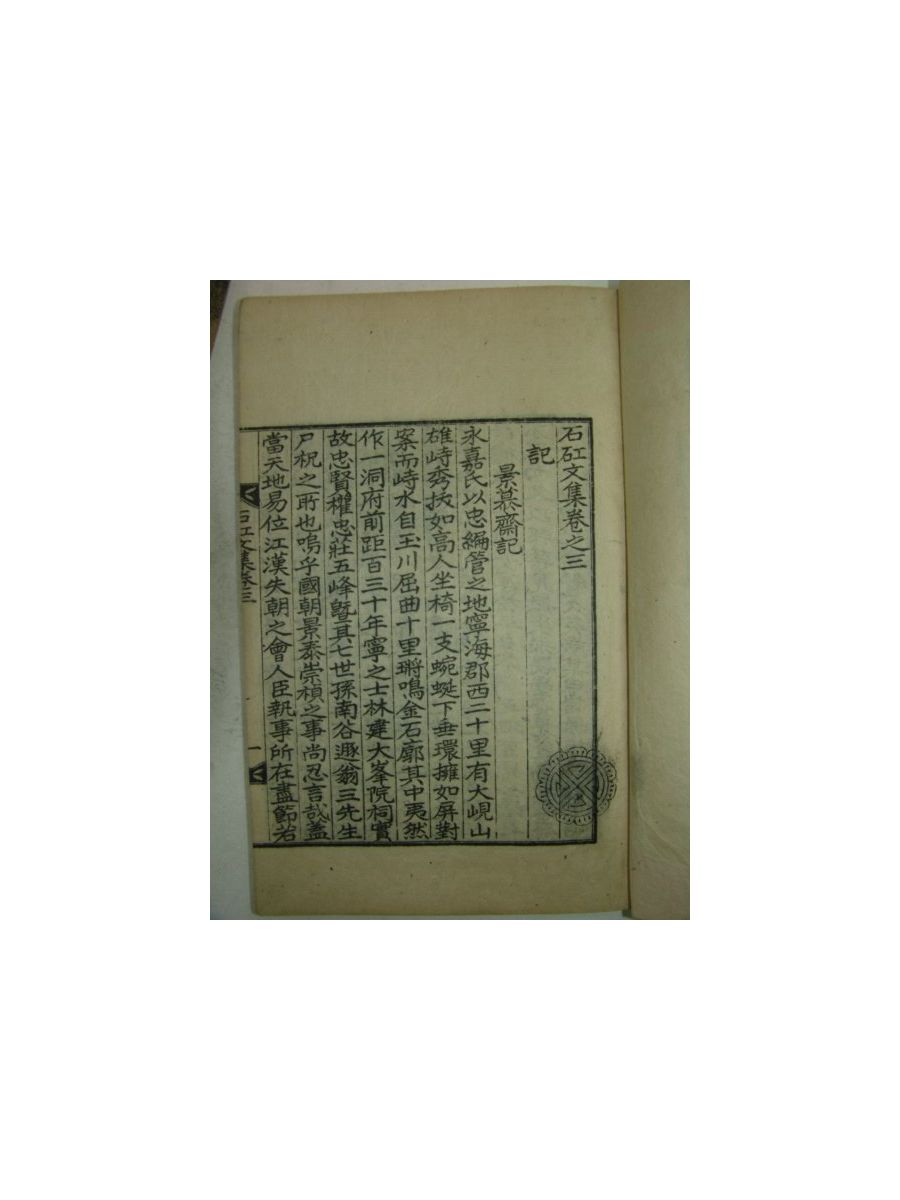 石矼文集卷之三
記
景慕齋記
永嘉氏以忠編管之地寧海郡西二十里有大峴山
雄峙秀拔如高人坐椅一支蜿蜒下垂環擁如屏對
案而峙水自玉川屈曲十里瑲鳴金石廓其中夷然
作一洞府前距百三十年寧之士林建大峯院祠實
故忠賢權忠莊五峰曁其七世孫南谷遯翁三先生
尸祝之所也嗚乎國朝景泰崇禎之事尚忍言哉盖
當天地易位江漢失朝之會人臣執事所在盡節若
石矼文集卷三
一